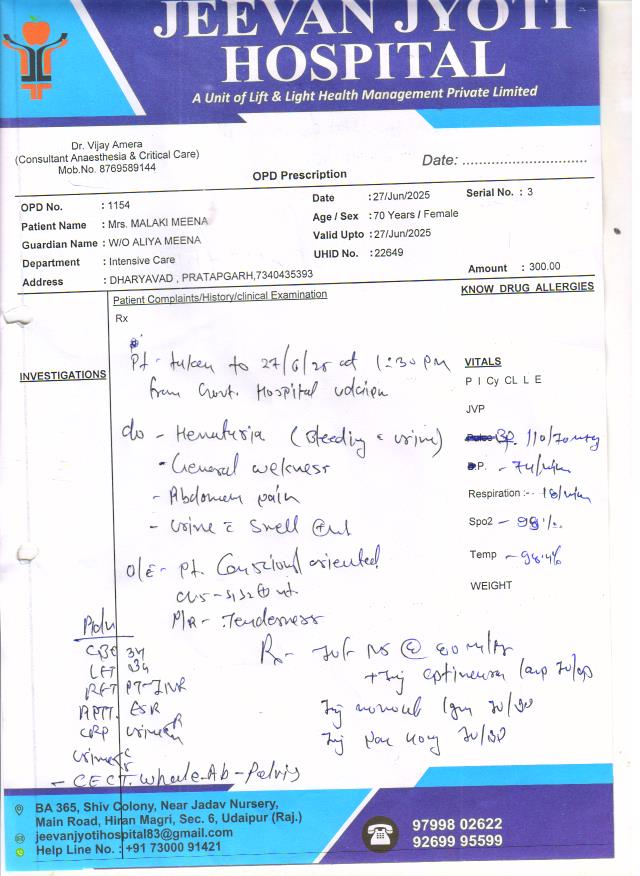 JEEVAN JYOTI
HOSPITAL
A Unit of Lift & Light Health Management Private Limited
Dr. Vijay Amera
(Consultant Anaesthesia & Critical Care)
Mob.No. 8769589144
Date: ..............................
OPD Prescription
OPD No. : 1154
Date : 27/Jun/2025
Serial No. : 3
Patient Name : Mrs. MALAKI MEENA
Age / Sex : 70 Years / Female
Guardian Name : W/O ALIYA MEENA
Valid Upto : 27/Jun/2025
Department : Intensive Care
UHID No. : 22649
Address : DHARYAVAD , PRATAPGARH,7340435393
Amount : 300.00
Patient Complaints/History/clinical Examination
KNOW DRUG ALLERGIES
Rx
INVESTIGATIONS
Pt - taken to 27/6/25 at 1:30 PM
from Govt. Hospital
c/o - Hematuria (Bleeding c urine)
- General wekness
- Abdomen pain
- Urine c Smell
O/E - Pt. Conscious oriented
P/A - Tenderness
VITALS
P I Cy CL L E
JVP
BP. 110/70
P. - 74/min
Respiration :- 18/min
Spo2 - 98%
Temp - 98.4
WEIGHT
Adv
CBC
LFT
RFT PT-INR
APTT. ESR
CRP Urine R
Urine C
- CECT. Whole Ab - Pelvis
Rx - NS @
+ Inj
Inj 1gm
Inj Pan 40mg
BA 365, Shiv Colony, Near Jadav Nursery,
Main Road, Hiran Magri, Sec. 6, Udaipur (Raj.)
jeevanjyotihospital83@gmail.com
Help Line No. : +91 73000 91421
97998 02622
92699 95599